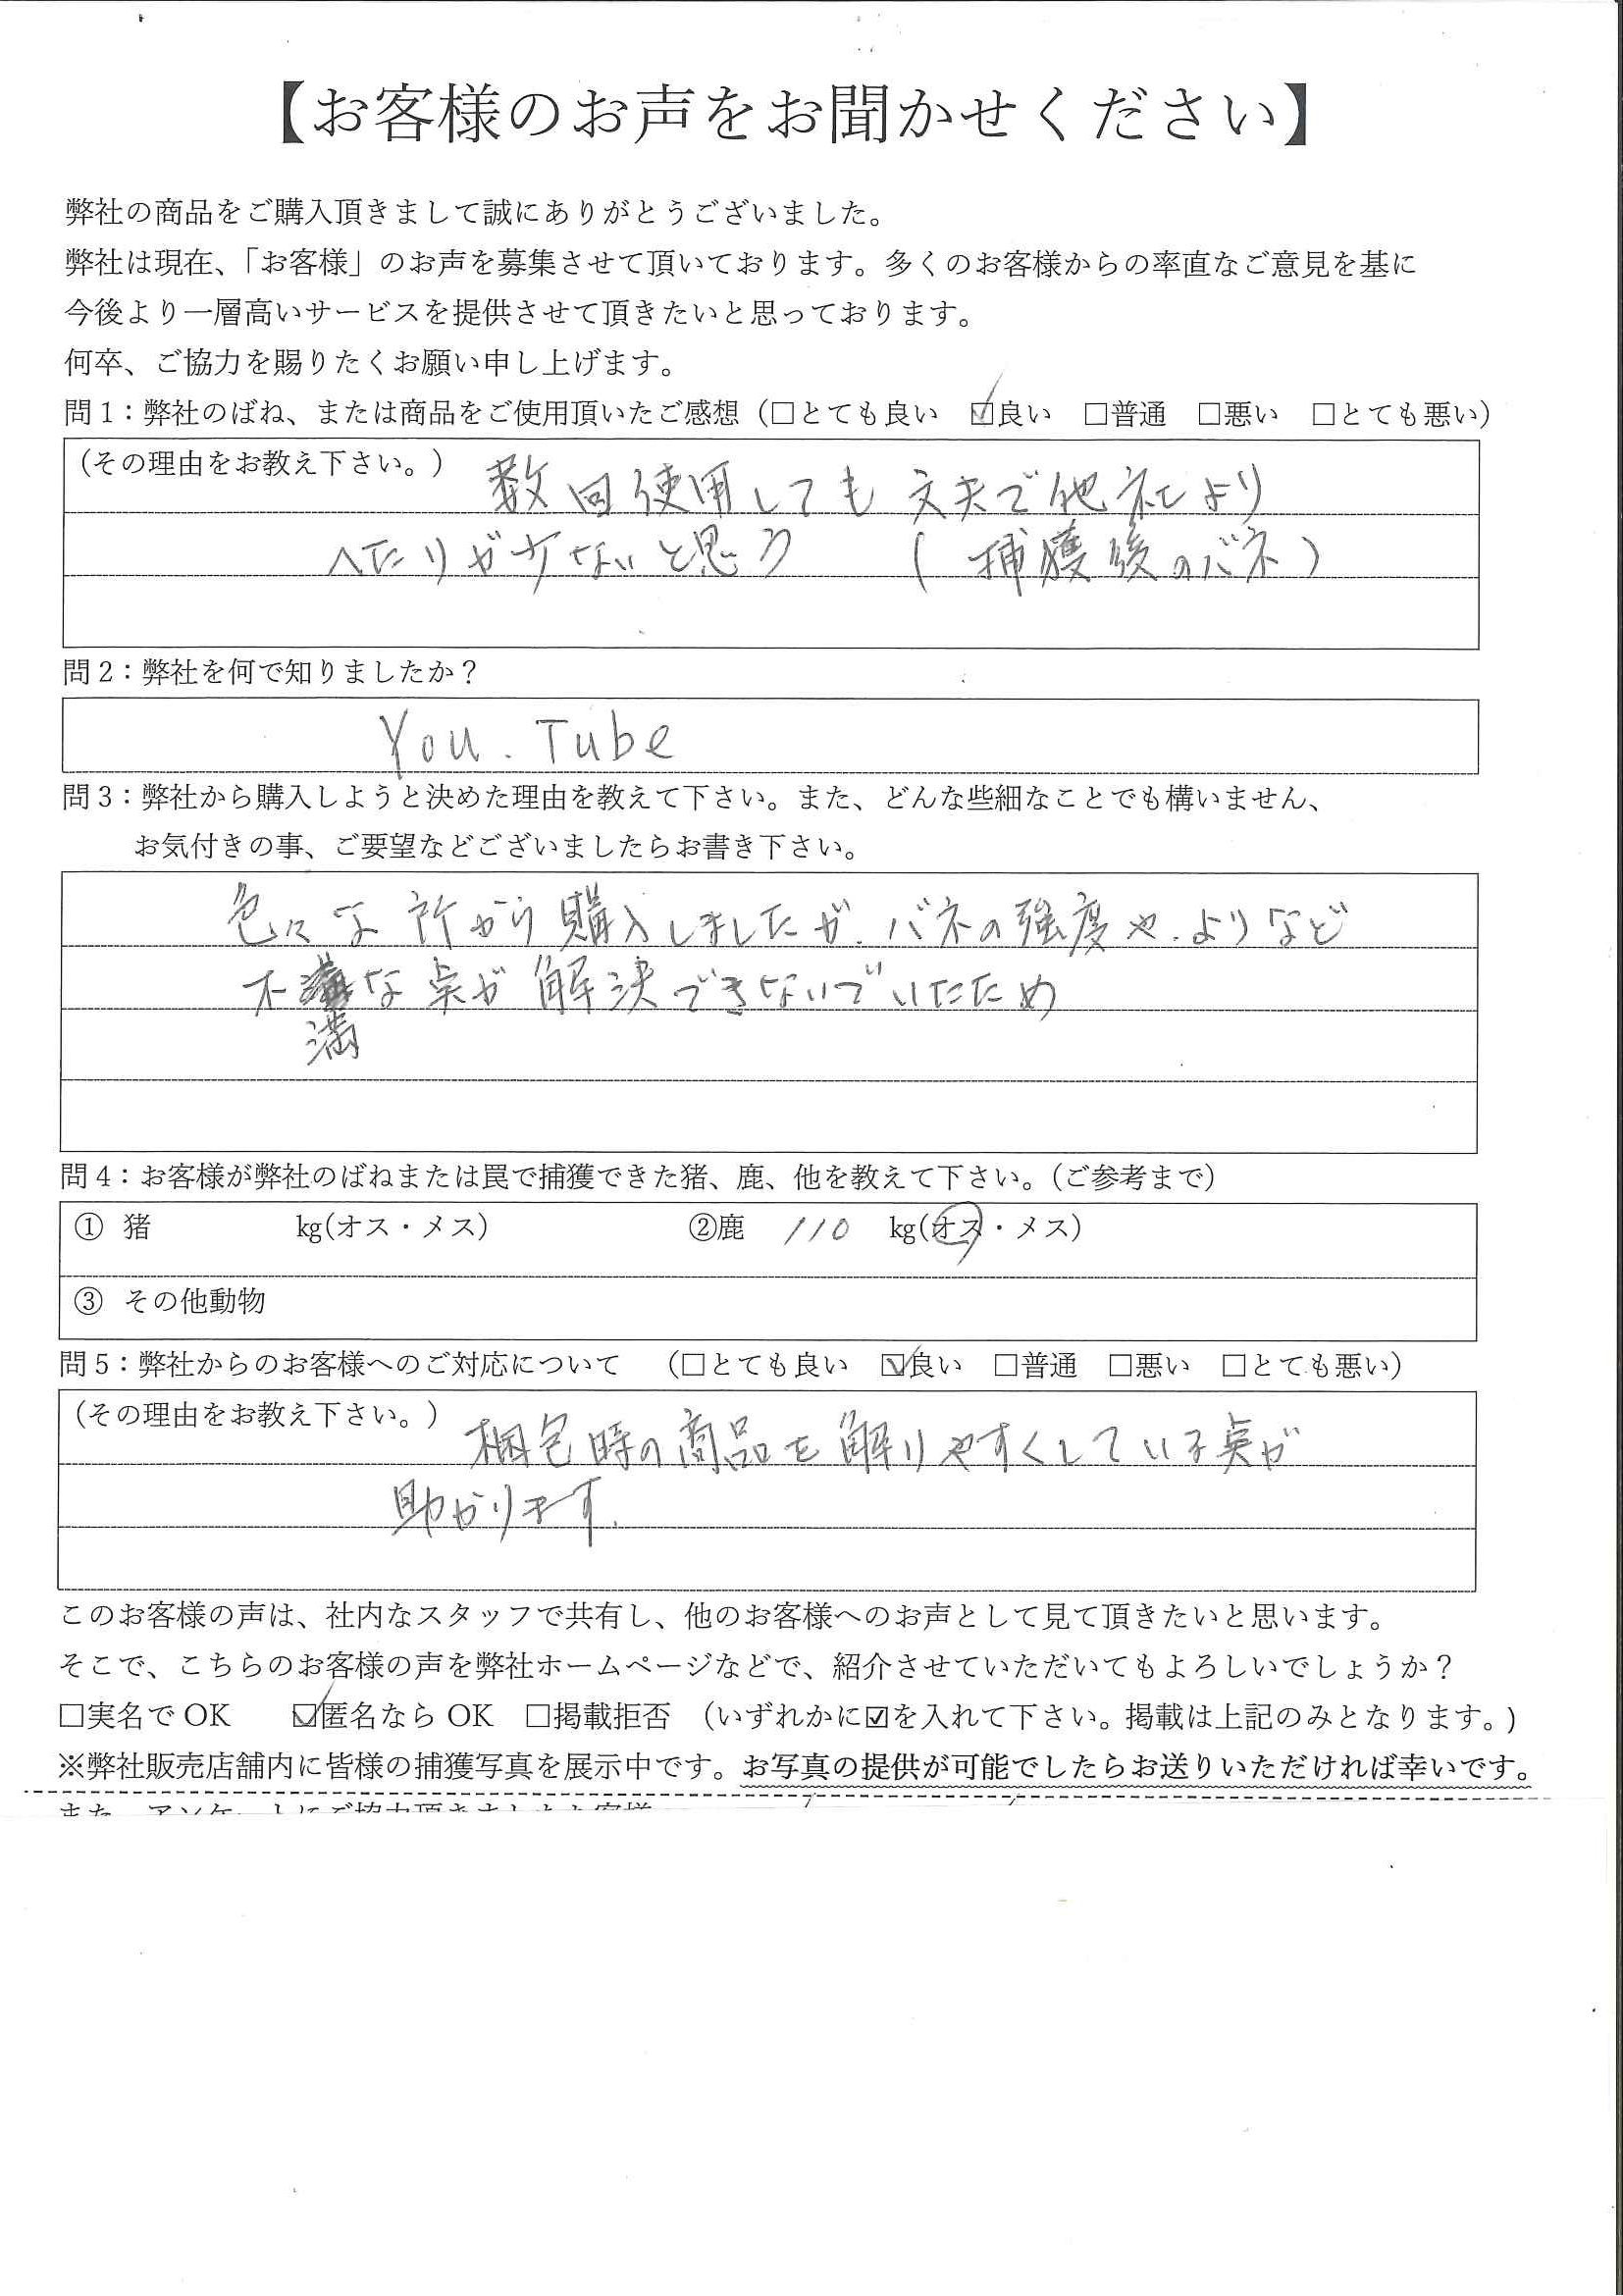 【お客様のお声をお聞かせください】
弊社の商品をご購入頂きまして誠にありがとうございました。
弊社は現在、「お客様」のお声を募集させて頂いております。多くのお客様からの率直なご意見を基に
今後より一層高いサービスを提供させて頂きたいと思っております。
何卒、ご協力を賜りたくお願い申し上げます。
問1：弊社のばね、または商品をご使用頂いたご感想（□とても良い ☑良い □普通 □悪い □とても悪い）
（その理由をお教え下さい。） 数回使用しても 丈夫で他社より
へたりが少ないと思う （捕獲後のバネ）
問2：弊社を何で知りましたか？
You.Tube
問3：弊社から購入しようと決めた理由を教えて下さい。また、どんな些細なことでも構いません、
お気付きの事、ご要望などございましたらお書き下さい。
色々な所から購入しましたが、バネの強度や、よりなど
不満な点が解決できないでいたため
問4：お客様が弊社のばねまたは罠で捕獲できた猪、鹿、他を教えて下さい。（ご参考まで）
① 猪 kg(オス・メス) ②鹿 110 kg(オス・メス)
③ その他動物
問5：弊社からのお客様へのご対応について （□とても良い ☑良い □普通 □悪い □とても悪い）
（その理由をお教え下さい。） 梱包時の商品を解りやすくしている点が
助かります.
このお客様の声は、社内なスタッフで共有し、他のお客様へのお声として見て頂きたいと思います。
そこで、こちらのお客様の声を弊社ホームページなどで、紹介させていただいてもよろしいでしょうか？
□実名で OK ☑匿名なら OK □掲載拒否 （いずれかに☑を入れて下さい。掲載は上記のみとなります。)
※弊社販売店舗内に皆様の捕獲写真を展示中です。お写真の提供が可能でしたらお送りいただければ幸いです。